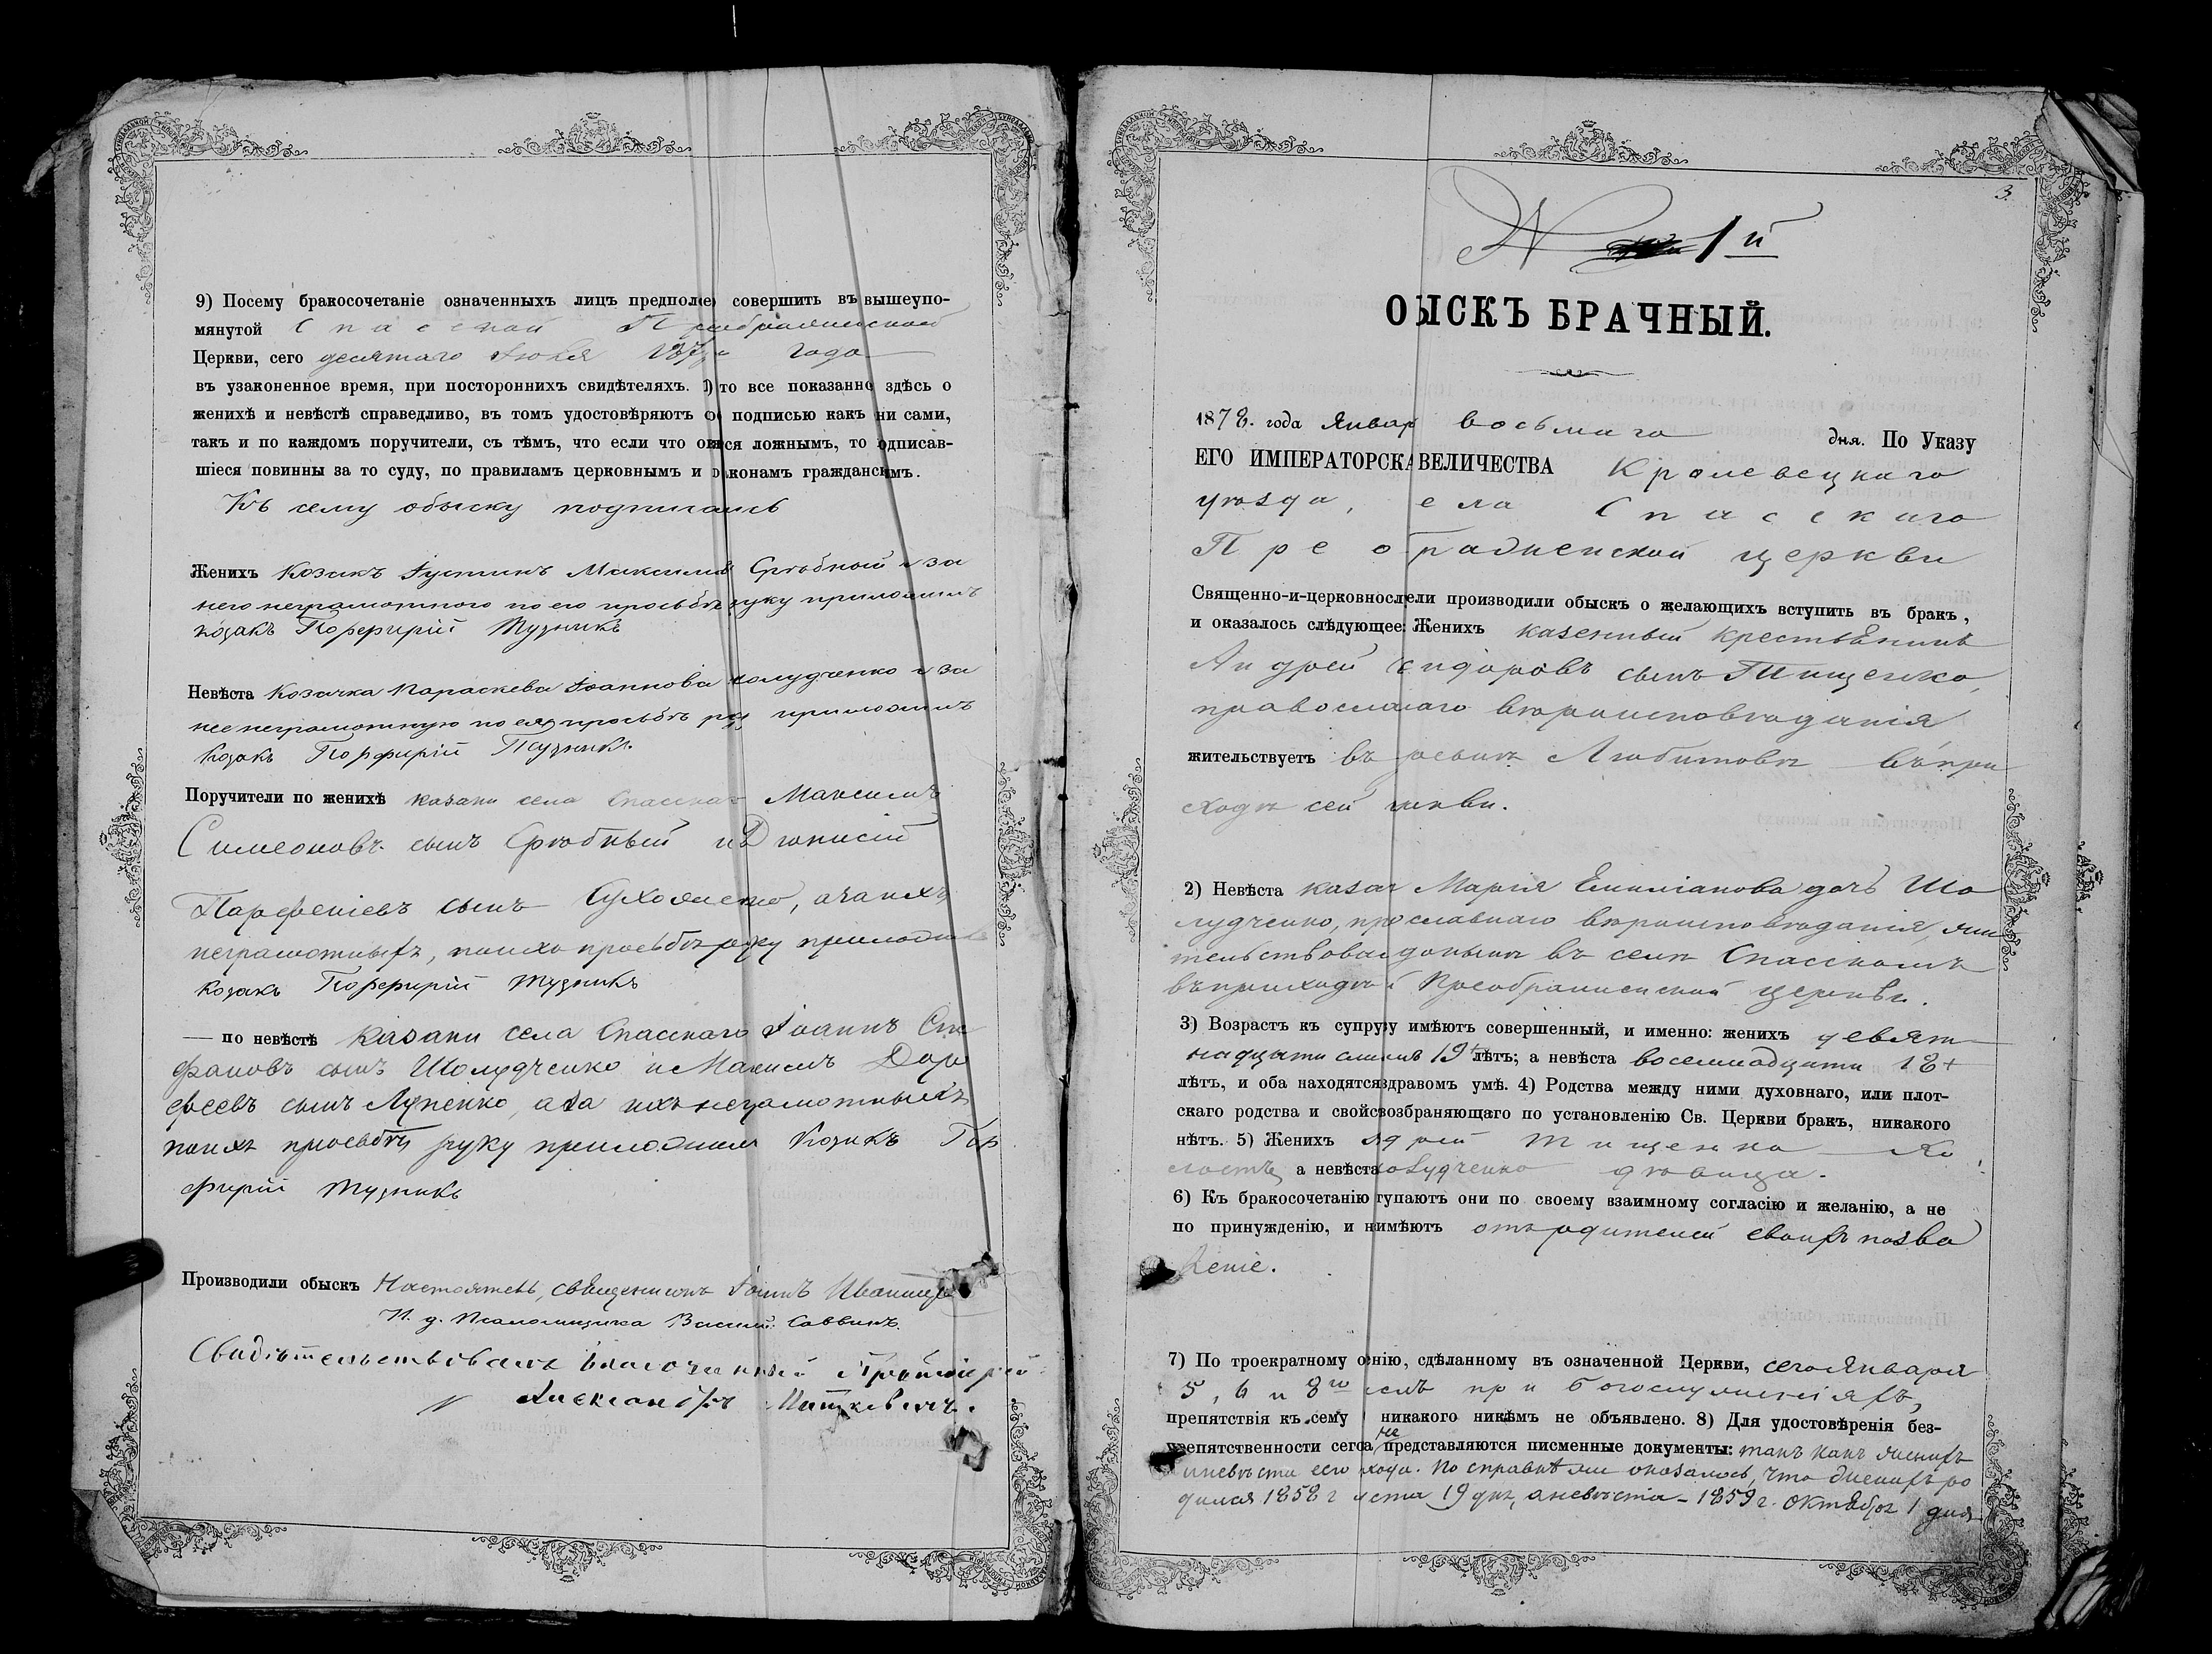 9) Посему бракосочетаніе означенныхъ лицъ предполо совершить въ вышеупо-
мянутой Спасской Преображенской
Церкви, сего десятаго Іюля года
въ узаконенное время, при постороннихъ свидѣтеляхъ. то все показанно здѣсь о
женихѣ и невѣстѣ справедливо, въ томъ удостовѣряютъ подписью какъ ни сами,
такъ и по каждомъ поручители, съ тѣмъ, что если что ок ся ложнымъ, то одписав-
шіеся повинны за то суду, по правиламъ церковнымъ и законамъ граждански мъ.
Къ сему обыску подписались
Женихъ Козакъ Іустинъ Максимов Срѣбной а за
него неграмотного по его просьбѣ руку приложилъ
козакъ Порфирій Тузникъ
Невѣста Козачка Параскева Іоаннова олудченко а за
нее неграмотную по ея просьбѣ ру приложилъ
Козакъ Порфирій Тузникъ.
Поручители по женихѣ казаки села Спасскаг Максимъ
Симеоновъ сынъ Срѣбный и Діонисій
Парфеніевъ сынъ Сухо , а за ихъ
неграмотныхъ, по ихъ просьбѣ руку приложил
Козакъ Порфирій Тузникъ
— по невѣстѣ казаки села Спасскаго Іоаннъ Сте
фановъ сынъ Шолудченко и Максимъ Доро
феевъ сынъ Лупенко, а за ихъ неграмотныхъ
по ихъ просьбѣ руку приложилъ Козакъ Пор
фирій Тузникъ
Производили обыскъ Настоятель, священникъ Іоаннъ
И. д. Псаломщика Василій Саввинъ.
Свидѣтельствовалъ Благочинный Протоіерей
Александръ
3.
N 1й
ОЫСКЪ БРАЧНЫЙ.
1878. года Январ восьмаго дня. По Указу
ЕГО ИМПЕРАТОРСКА ВЕЛИЧЕСТВА Кролевецкаго
уѣзда, ела Спасскаго
Прео раженской церкви
Священно-и-церковносл ели производили обыскъ о желающихъ вступить въ бракъ,
и оказалось слѣдующее: Женихъ казенный крестьянинъ
Андрей Сидоровъ сынъ Тищенко,
православнаго вѣроисповѣданія
жительствуетъ въ Любитовѣ въ при
ходѣ сей церкви.
2) Невѣста казач Марія Емиліанова дочь Шо
лудченко, православнаго вѣроисповѣданія, жи
тельствовал донынѣ въ селѣ Спасскомъ
въ приходѣ Преображенской церкви.
3) Возрастъ къ супру у имѣютъ совершенный, и именно: женихъ девят
надцати 19 лѣтъ; а невѣста восемнадцати 18+
лѣтъ, и оба находятся здравомъ умѣ. 4) Родства между ними духовнаго, или плот-
скаго родства и свойс возбраняющаго по установленію Св. Церкви бракъ, никакого
нѣтъ. 5) Женихъ дрей Тищенко Хо
лостъ, а невѣста олудченко дѣвица.
6) Къ бракосочетанію тупаютъ они по своему взаимному согласію и желанію, а не
по принужденію, и н имѣютъ отъ родителей своихъ позво
леніе.
7) По троекратному о енію, сдѣланному въ означенной Церкви, сего Января
5, 6 и 8го при богослуженіяхъ,
препятствія къ сему никакого никѣмъ не объявлено. 8) Для удостовѣренія без-
препятственности сего а, не представляются писменные документы: такъ какъ женихъ
и невѣста сего хода. По справкѣ же оказалось, что женихъ ро
дился 1858 г 19 дня, а невѣста - 1859 г. Октября 1 дня